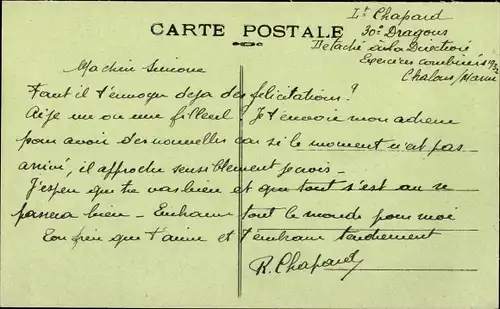 CARTE POSTALE
Lt Chapard
30e Dragons
Détaché à la Direction
Exercices combinés 1932
Chalons/Marne
Ma chère Simone
Faut il t'envoyer deja des felicitations ?
Ai je un ou une filleul ? Je t'envoie mon adresse
pour avoir des nouvelles car si le moment n'est pas
arrivé, il approche sensiblement je crois -
J'espère que tu vas bien et que tout s'est ou se
passera bien - Embrasse tout le monde pour moi
Ton frère que t'aime et t'embrasse tendrement
R. Chapard